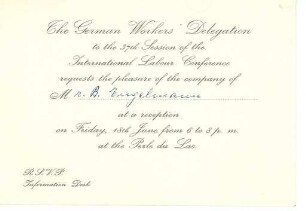 The German Workers' Delegation
to the 37th Session of the
International Labour Conference
requests the pleasure of the company of
Mr. B. Engelmann
at a reception
on Friday, 18th June, from 6 to 8 p. m.
at the Perle du Lac
R.S.V.P.
Information Desk